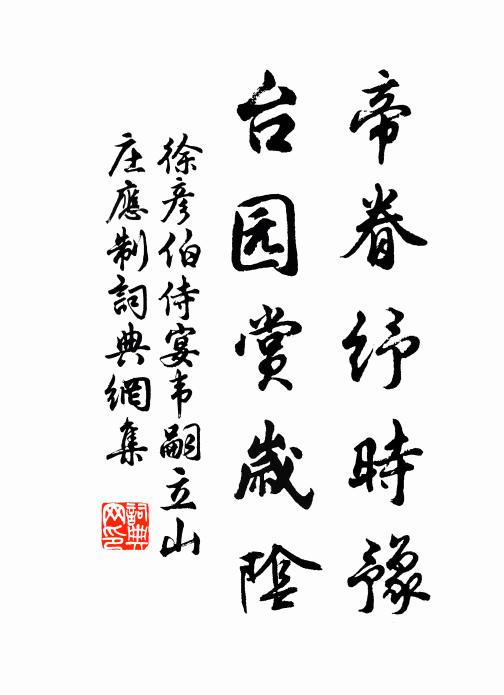 帝眷纾時豫
台园赏歲陰
徐彦伯侍宴韦嗣立山
庄應制詞典網集
詞典网印